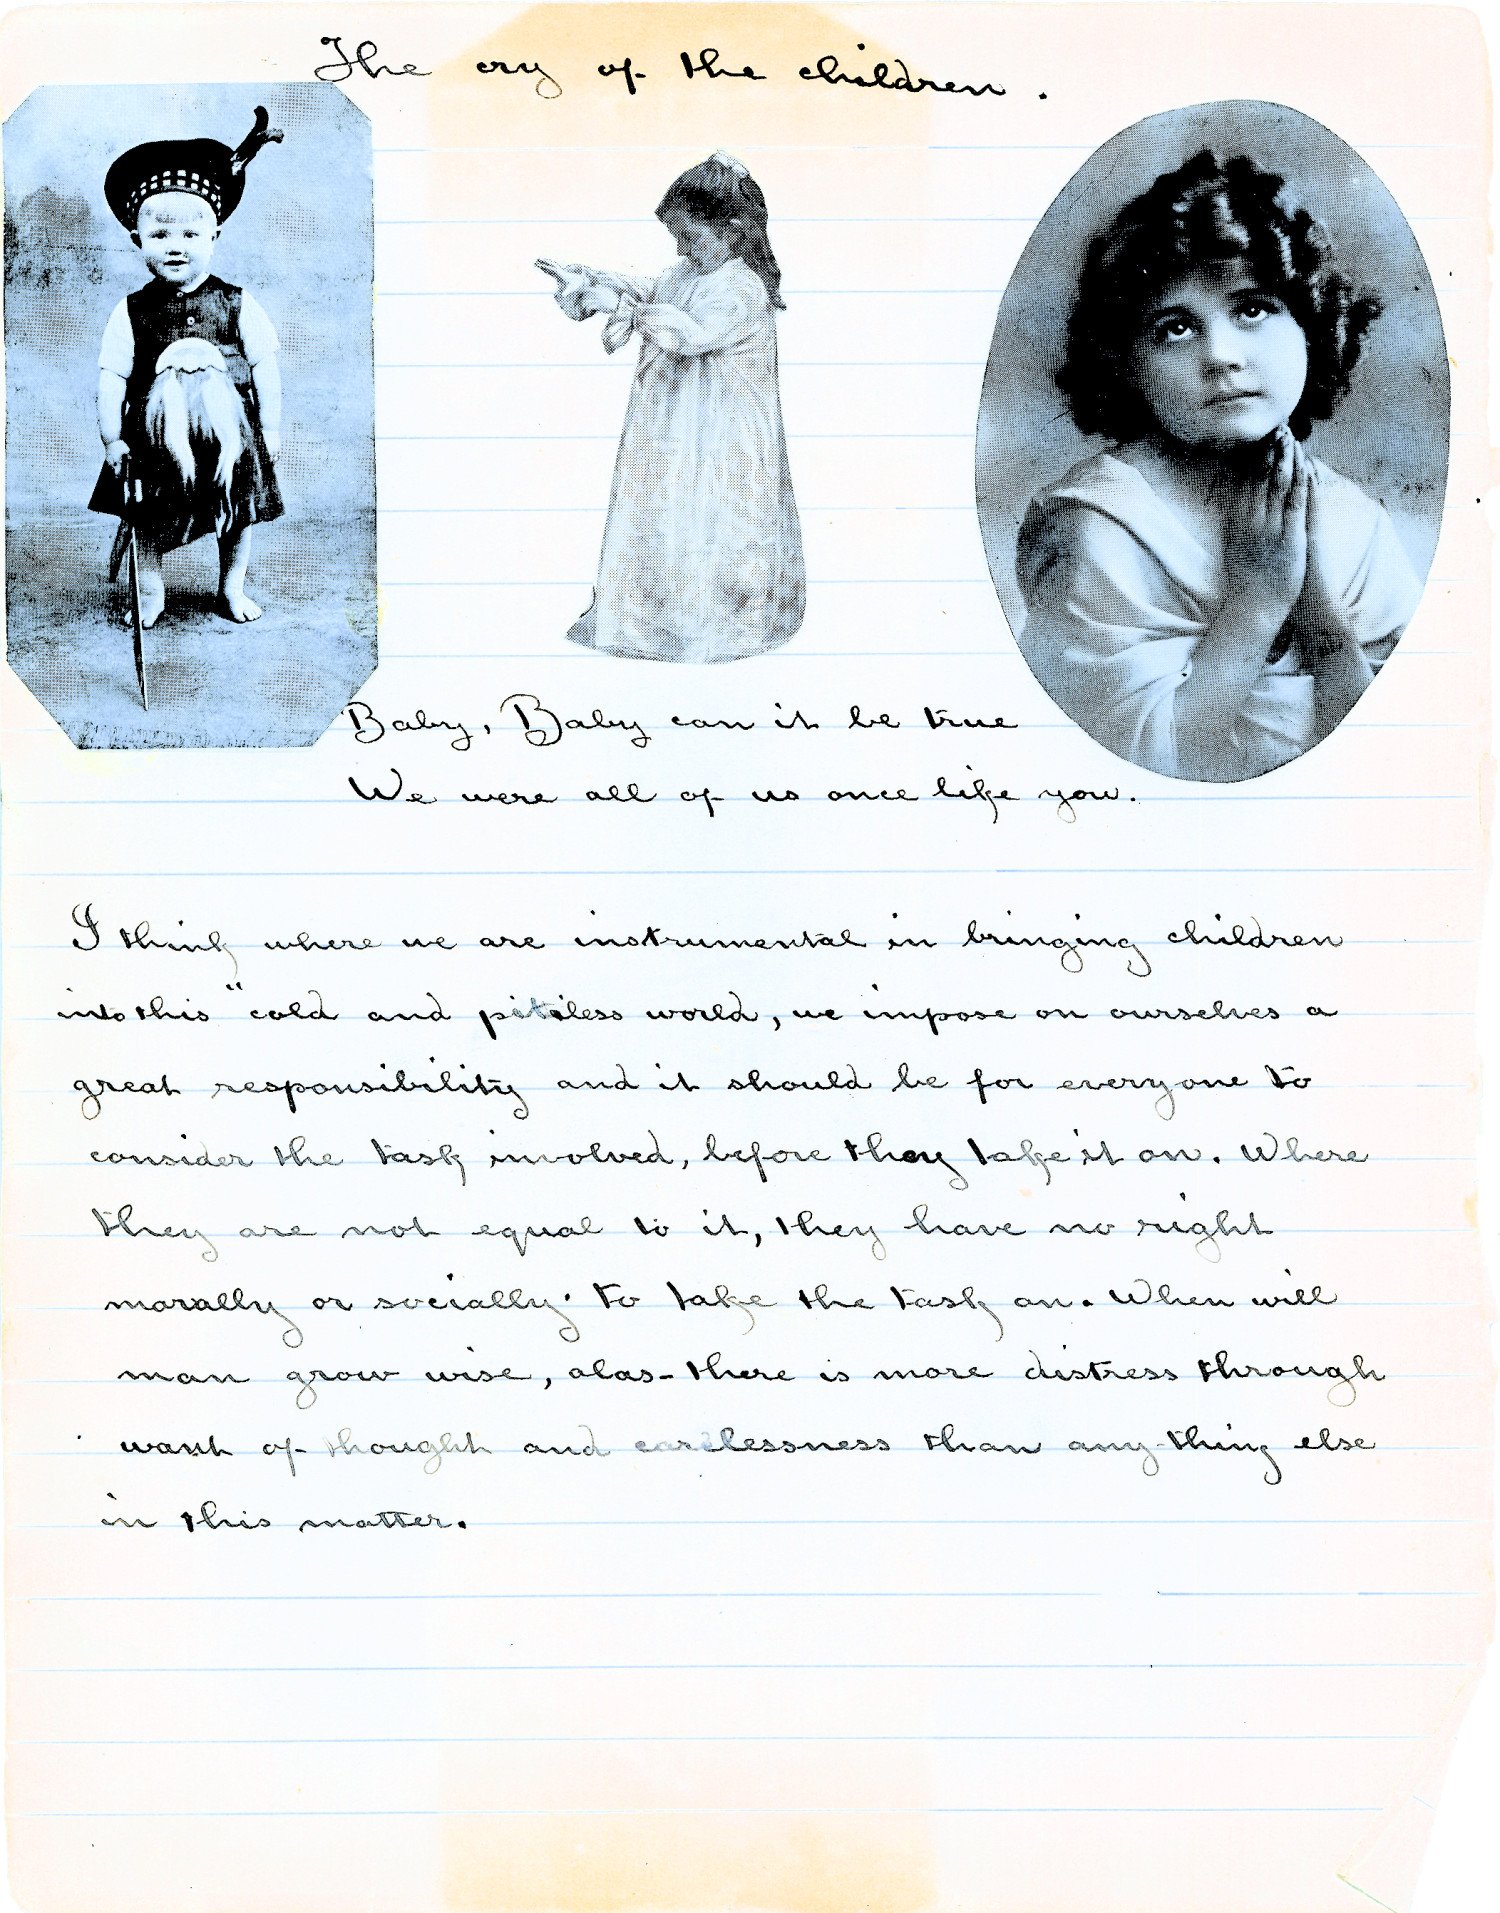 The cry of the children.
Baby, Baby can it be true
We were all of us once like you.
I think where we are instrumental in bringing children
into this "cold and pitiless world, we impose on ourselves a
great responsibility and it should be for everyone to
consider the task involved, before they take it on. Where
they are not equal to it, they have no right
morally or socially to take the task on. When will
man grow wise, alas - there is more distress through
want of thought and carelessness than any-thing else
in this matter.